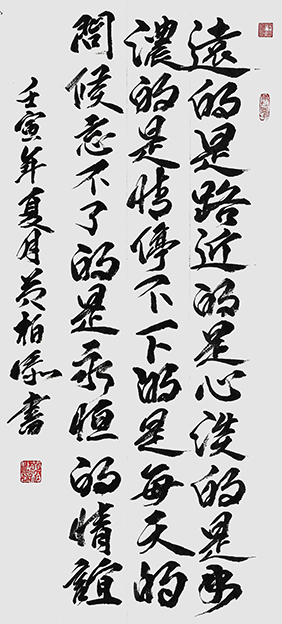 遠的是路近的是心淡的是水
濃的是情停不下的是每天的
問候忘不了的是永恒的情誼
壬寅年夏月柏添書